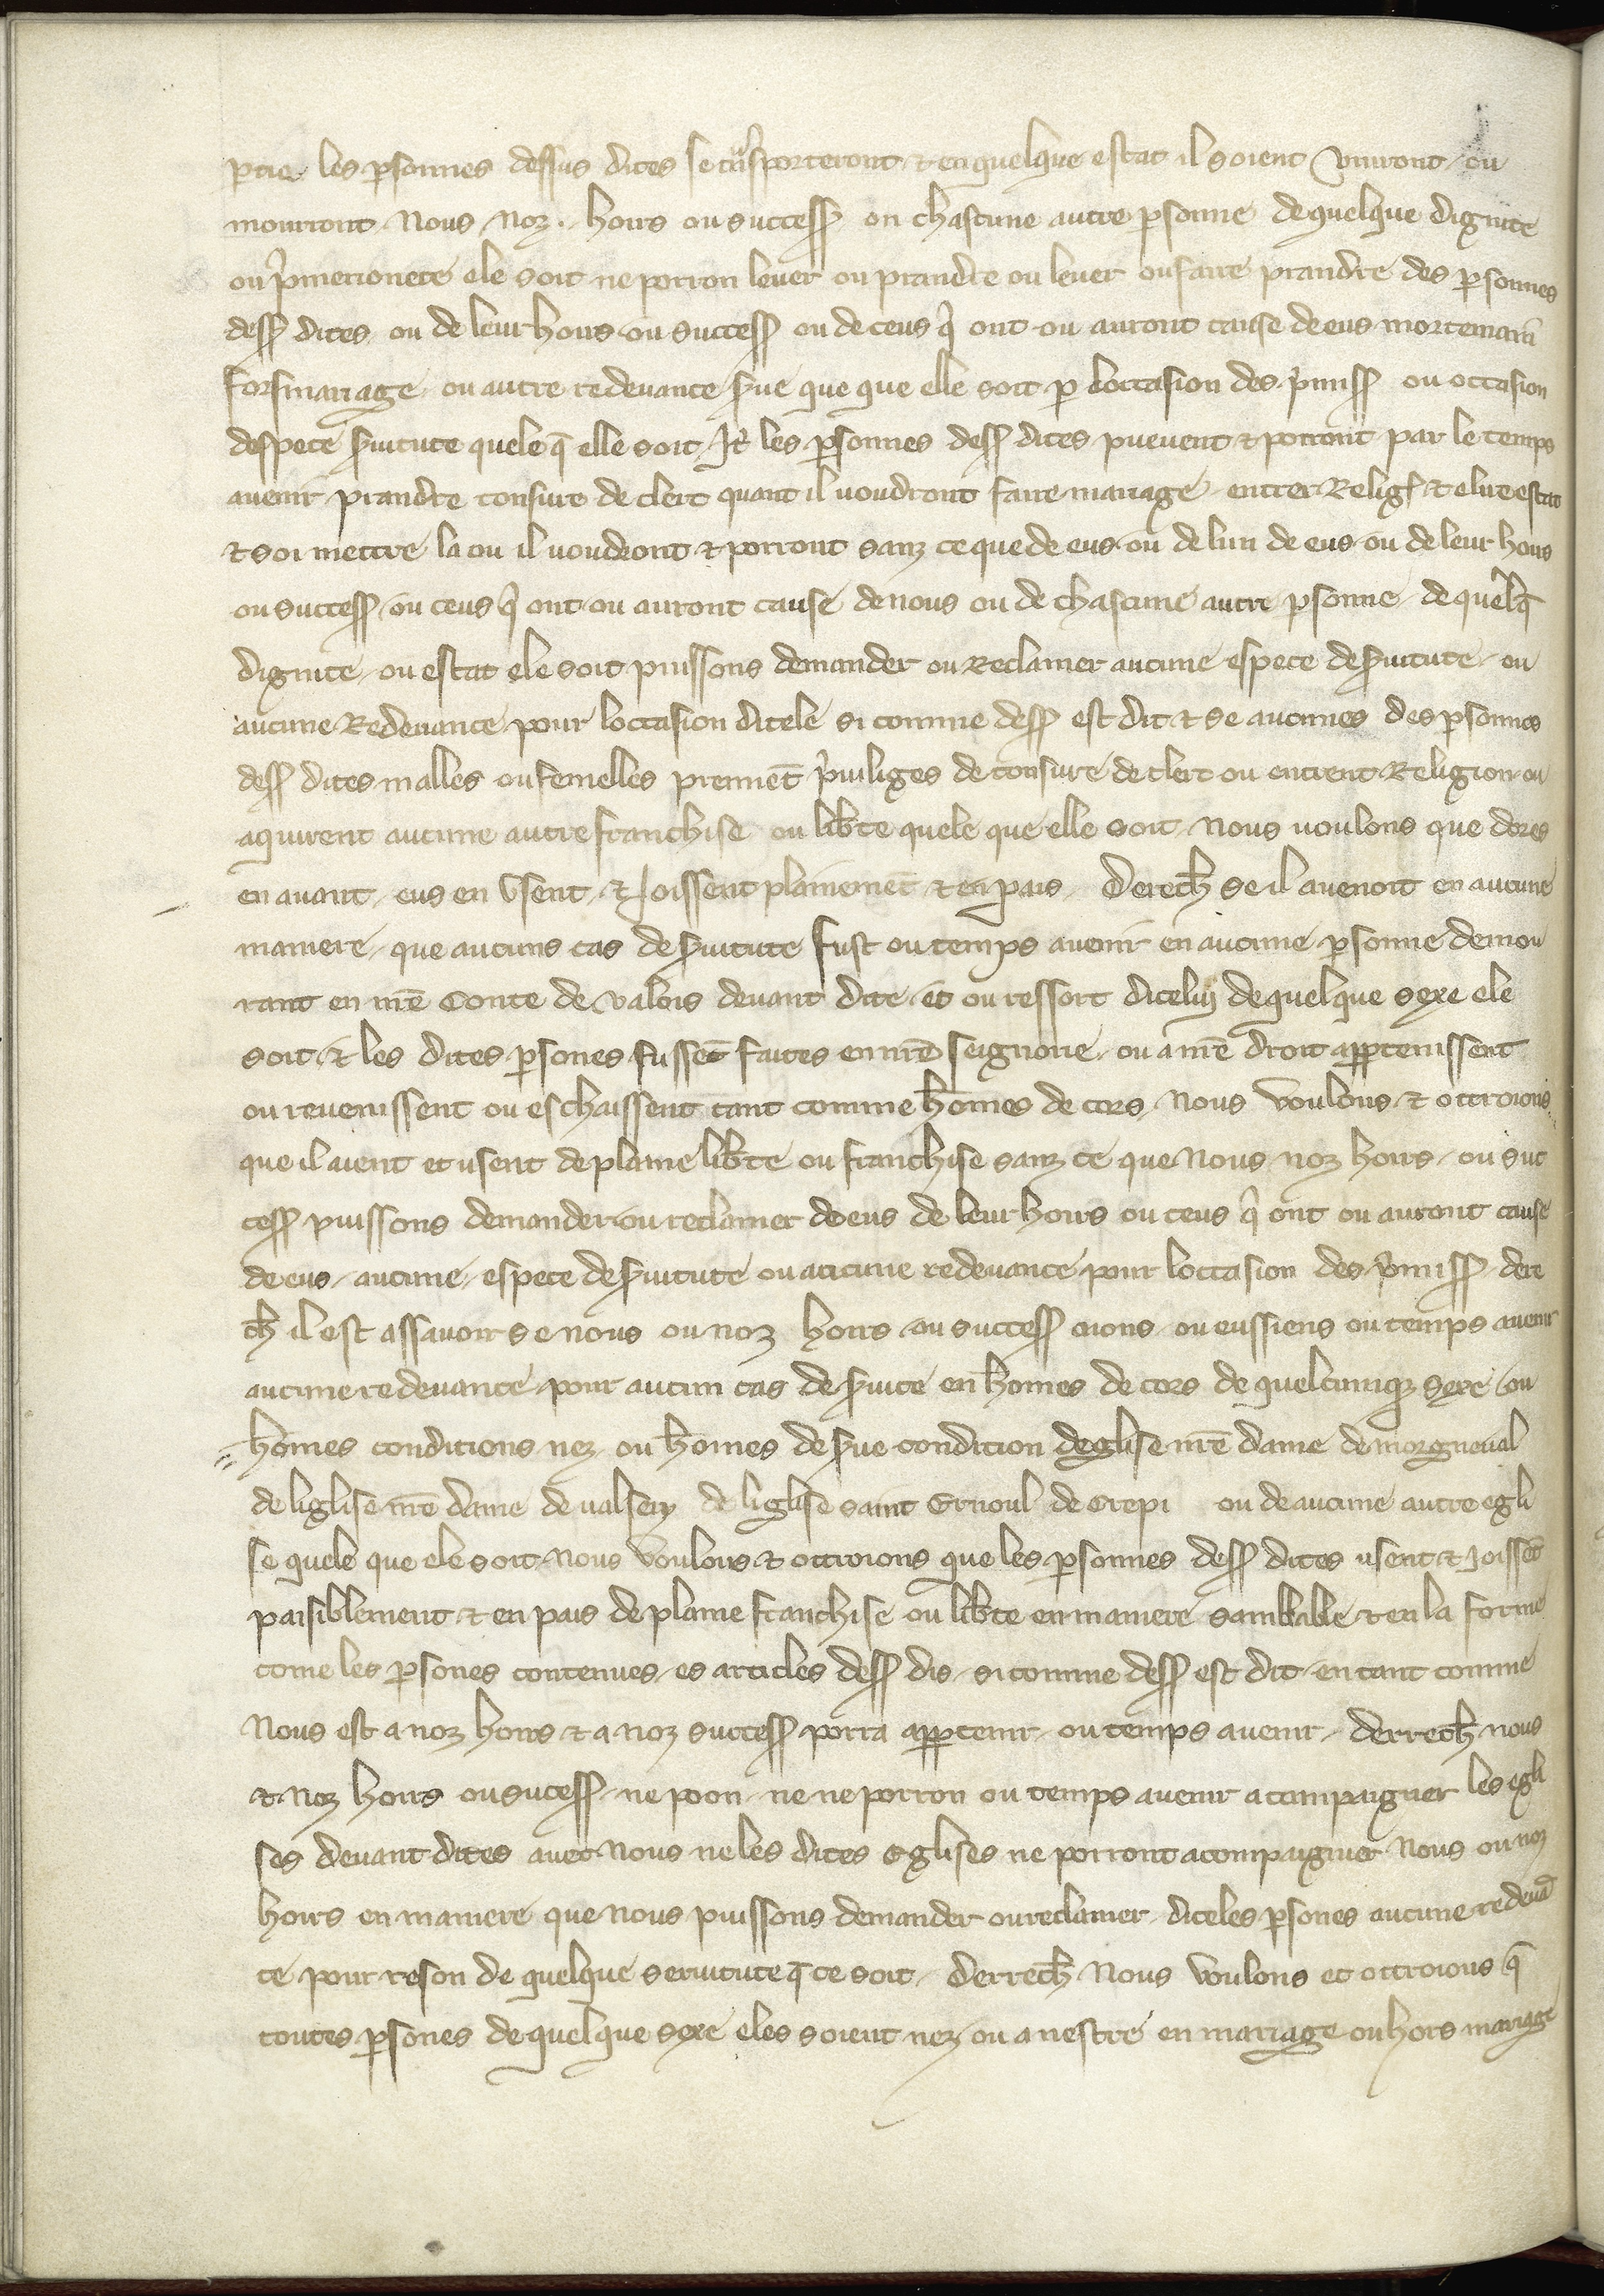 ptie les psonnes dessus dites se tᵃnsporteront ⁊ en quelque estat il soient viuront ou
mourront Nous noz hoirs ou success ou chascune autre psonne de quelque dignite
ou pᵉmetionete ele soit ne porron leuer ou prandre ou leuer ou faire prandre des psonnes
dess dites ou de leur hoirs ou success ou de ceus qⁱ ont ou auront cause de eus mortemain
forsmariage ou autre redeuance sˀue que que elle soit p loccasion des pᵉmiss ou occasion
despece sˀuitute quele q̄ elle soit Jt̄ les psonnes dess dites pueuent ⁊ porront par le temps
auenir prandre tonsure de clerc quant il uoudront faire mariage entrer Relig̓ ⁊ elire estat
⁊ soi mettre la ou il uoudront ⁊ porront sanz ce que de eus ou de lun de eus ou de leur hoirs
ou success ou ceus qⁱ ont ou auront cause de nous ou de chascune autre psonne de quelq̄
dignite ou estat ele soit puissons demander ou Reclamer aucune espece de sˀuitute ou
aucune Redeuance pour loccasion dicele si comme dess est dit ⁊ se aucunes des psonnes
dess dites malles ou femelles prennēt pⁱuiliges de tonsure de clerc ou entrent Religion ou
aquirent aucune autre franchise ou lib̄te quele que elle soit Nous uoulons que dores
en auant eus en vsent ⁊ Joissent plainemēt ⁊ en pais Derech̄ se il auenoit en aucune
maniere que aucuns cas de sˀuitute fust ou temps auenir en aucune psonne demou
rant en nr̄e Conte de valois deuant dite et ou ressort diceluy de quelque sexe ele
soit ⁊ les dites psones fussēt faites en nr̄e seignorie ou a nr̄e droit appartenissent
ou reuenissent ou eschaissent tant comme hōmes de cors Nous voulons ⁊ octroions
que il aient et usent de plaine lib̄te ou franchise sanz ce que Nous noz hoirs ou suc
cess puissons demander ou reclamer de eus de leur hoirs ou ceus qⁱ ont ou auront cause
de eus aucune espece de sˀuitute ou aucune redeuance pour loccasion des pᵉmiss dere
ch̄ il est assauoir se nous ou noz hoirs ou success aions ou eussiens ou temps auenir
aucune redeuance pour aucun cas de sˀuite en hōmes de cors de quelcunqz sexe ou
hōmes conditions nez ou hōmes de sˀue condition deglise nr̄e dame de morgneual
de liglise nr̄e dame de ualsery de liglise saint Ernoul de Crepi ou de aucune autre egli
se quele que ele soit Nous voulons ⁊ octroions que les psonnes dess dites usent ⁊ joissēt
paisiblement ⁊ en pais de plaine franchise ou lib̄te en maniere samblable ⁊ en la forme
come les psones contenues es articles dess dis si comme dess est dit en tant comme
Nous est a noz hoirs ⁊ a noz success porra appartenir ou temps auenir derrech̄ nous
⁊ noz hoirs ou sucess ne poon ne ne porron ou temps auenir acompaigner les egli
ses deuant dites auec Nous ne les dites eglises ne porront acompaigner Nous ou noz
hoirs en maniere que nous puissons demander ou reclamer diceles psones aucune redeuā
ce pour reson de quelque seruitute q̄ ce soit derrech̄ Nous voulons et octroions q̄
toutes psones de quelque sexe eles soient nez ou a nestre en mariage ou hors mariage